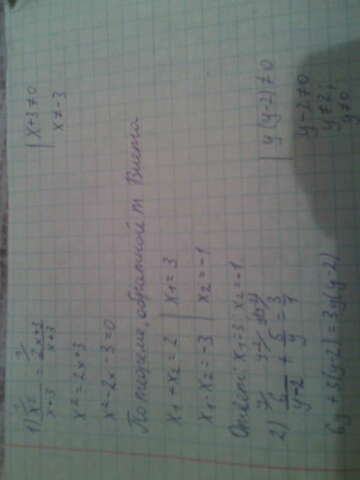 1) x²/x+3 = 2x+3/x+3 | x+3≠0
x≠-3
x² = 2x+3
x²-2x-3=0
По теореме, обратной т. Виета
x₁+x₂=2 | x₁=3
x₁·x₂=-3 | x₂=-1
Ответ: x₁=3 x₂=-1
2) 6/y-2 + 5/y = 3/1 | y(y-2)≠0
y-2≠0
y≠2;
y≠0
6y+5(y-2)=3y(y-2)